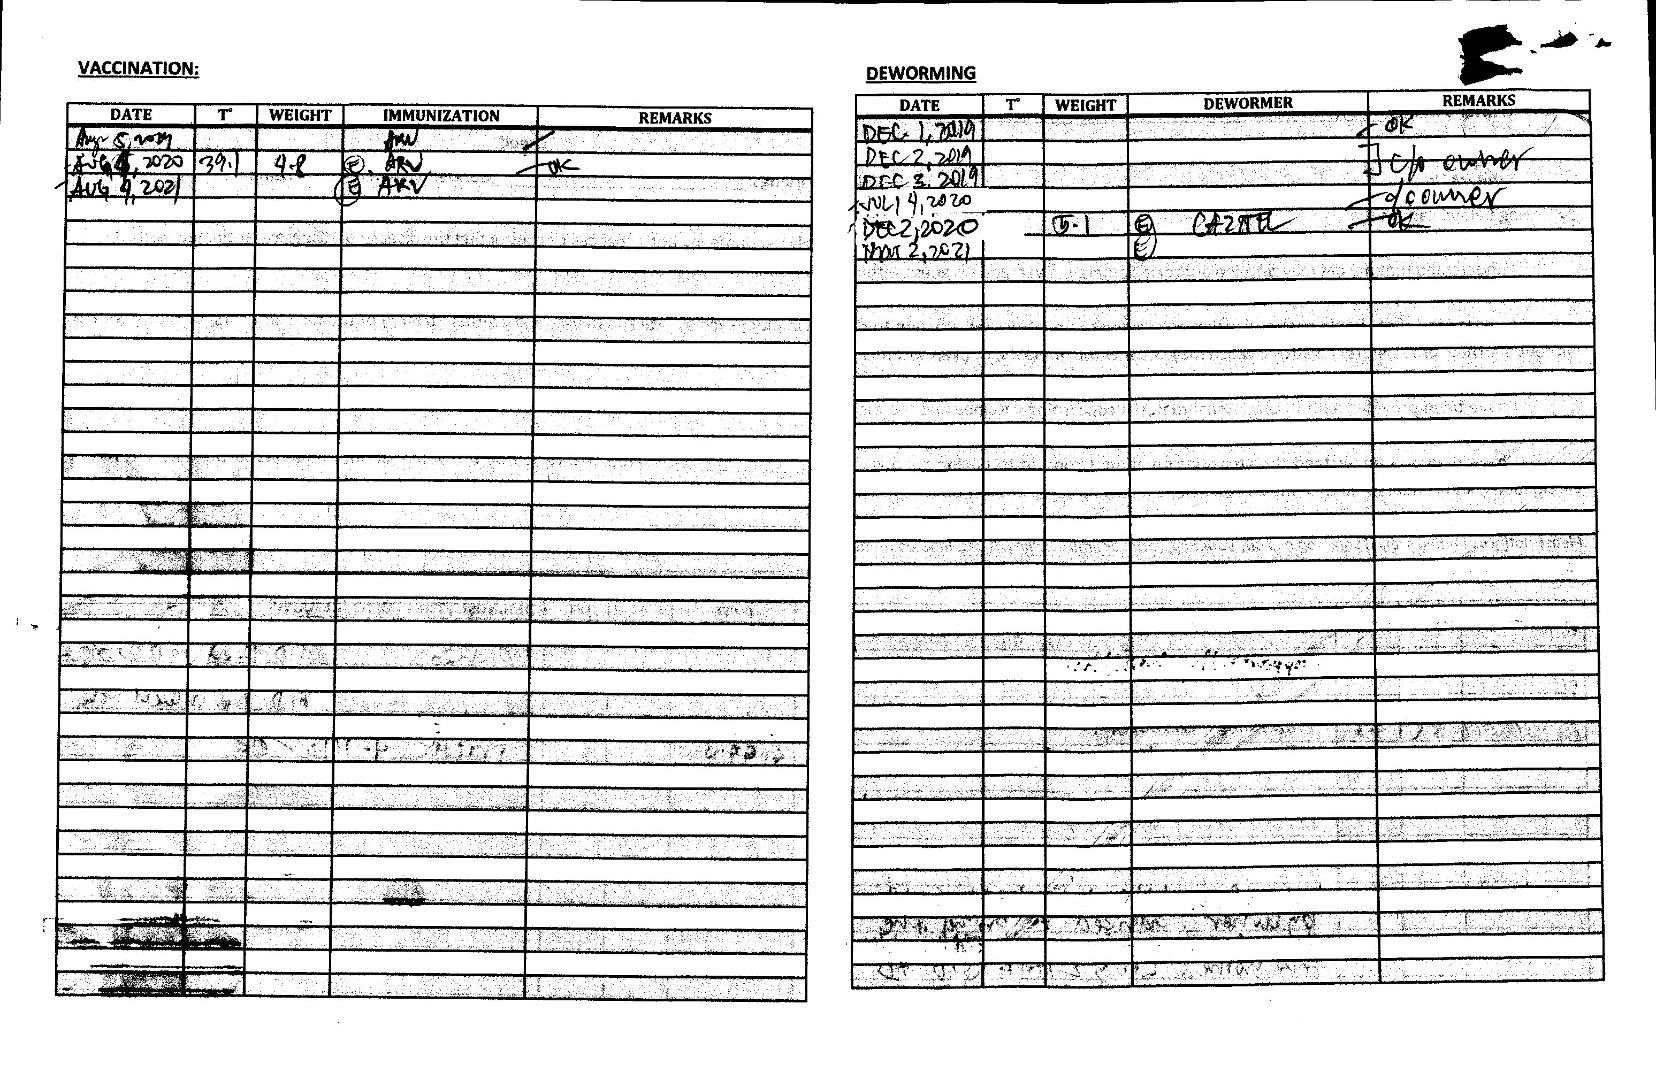 VACCINATION:
DATE T° WEIGHT IMMUNIZATION REMARKS
Aug 5, 2019 ARV
AUG 4, 2020 39.1 4.8 E. ARV OK
AUG 4, 2021 E ARV
DEWORMING
DATE T° WEIGHT DEWORMER REMARKS
DEC. 1, 2019 OK
DEC 2, 2019 c/o owner
DEC 3. 2019
JUL 4, 2020 c/o owner
DEC 2, 2020 5.1 E OK
MAR 2, 2021 E